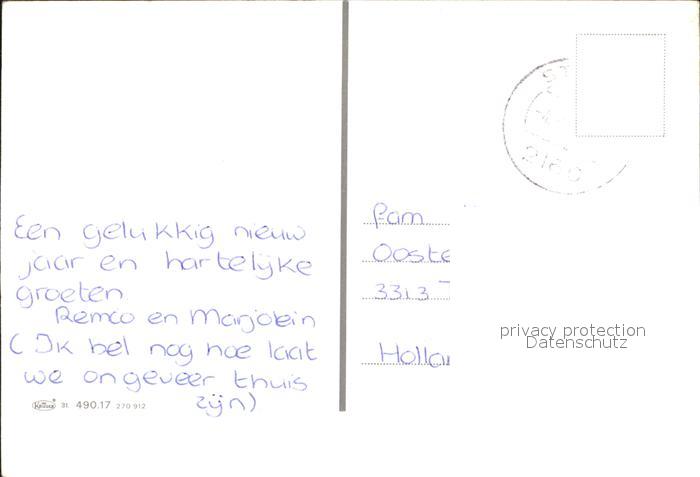 Een gelukkig nieuw
jaar en hartelijke
groeten
Remco en Marjolein
(Ik bel nog hoe laat
we ongeveer thuis
zijn)
KRÜGER 31. 490.17 270 912
2160
Fam
Ooste
3313
Hollan
privacy protection
Datenschutz